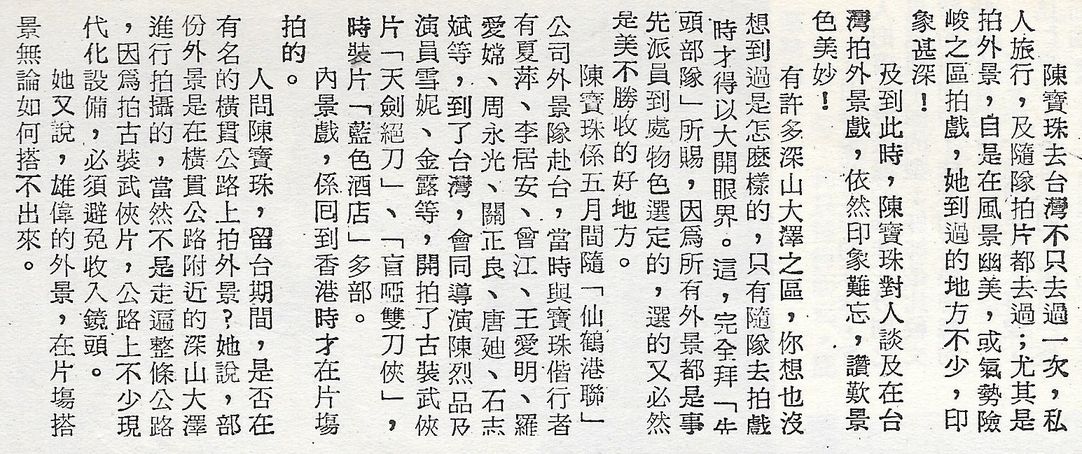 陳寶珠去台灣不只去過一次，私
人旅行，及隨隊拍片都去過；尤其是
拍外景，自是在風景幽美，或氣勢險
峻之區拍戲，她到過的地方不少，印
象甚深！
及到此時，陳寶珠對人談及在台
灣拍外景戲，依然印象難忘，讚歎景
色美妙！
有許多深山大澤之區，你想也沒
想到過是怎麼樣的，只有隨隊去拍戲
時才得以大開眼界。這，完全拜「先
頭部隊」所賜，因爲所有外景都是事
先派員到處物色選定的，選的又必然
是美不勝收的好地方。
陳寶珠係五月間隨「仙鶴港聯」
公司外景隊赴台，當時與寶珠偕行者
有夏萍、李居安、曾江、王愛明、羅
愛嫦、周永光、關正良、唐廸、石志
斌等，到了台灣，會同導演陳烈品及
演員雪妮、金露等，開拍了古裝武俠
片「天劍絕刀」、「盲啞雙刀俠」，
時裝片「藍色酒店」多部。
內景戲，係回到香港時才在片塲
拍的。
人問陳寶珠，留台期間，是否在
有名的橫貫公路上拍外景？她說，部
份外景是在橫貫公路附近的深山大澤
進行拍攝的，當然不是走遍整條公路
，因爲拍古裝武俠片，公路上不少現
代化設備，必須避免收入鏡頭。
她又說，雄偉的外景，在片塲搭
景無論如何搭不出來。